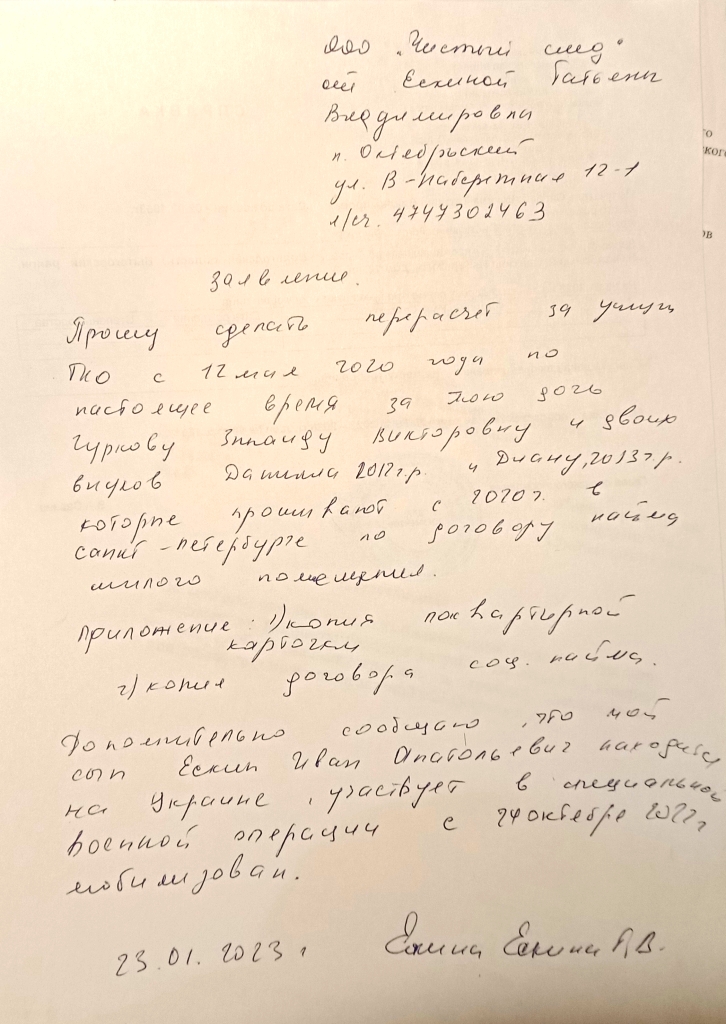 ООО „Чистый след"
от Ескиной Татьяны
Владимировны
п. Октябрьский
ул. В-Набережная 12-1
л/сч. 4747302463
го
ског
ов
Заявление.
Прошу сделать перерасчет за услуги
ТКО с 12 мая 2020 года по
настоящее время за мою дочь
Гуркову Зинаиду Викторовну и двоих
внуков Данилла 2012г.р. и Диану, 2013г.р.
которые проживают с 2020г. в
Санкт-Петербурге по договору найма
жилого помещения.
Приложение: 1) копия поквартирной
карточки
2) копия договора соц. найма.
Дополнительно сообщаю, что мой
сын Ескин Иван Анатольевич находится
на Украине, участвует в специальной
военной операции с 24 октября 2022г
мобилизован.
23.01.2023г Ескина Ескина Т.В.